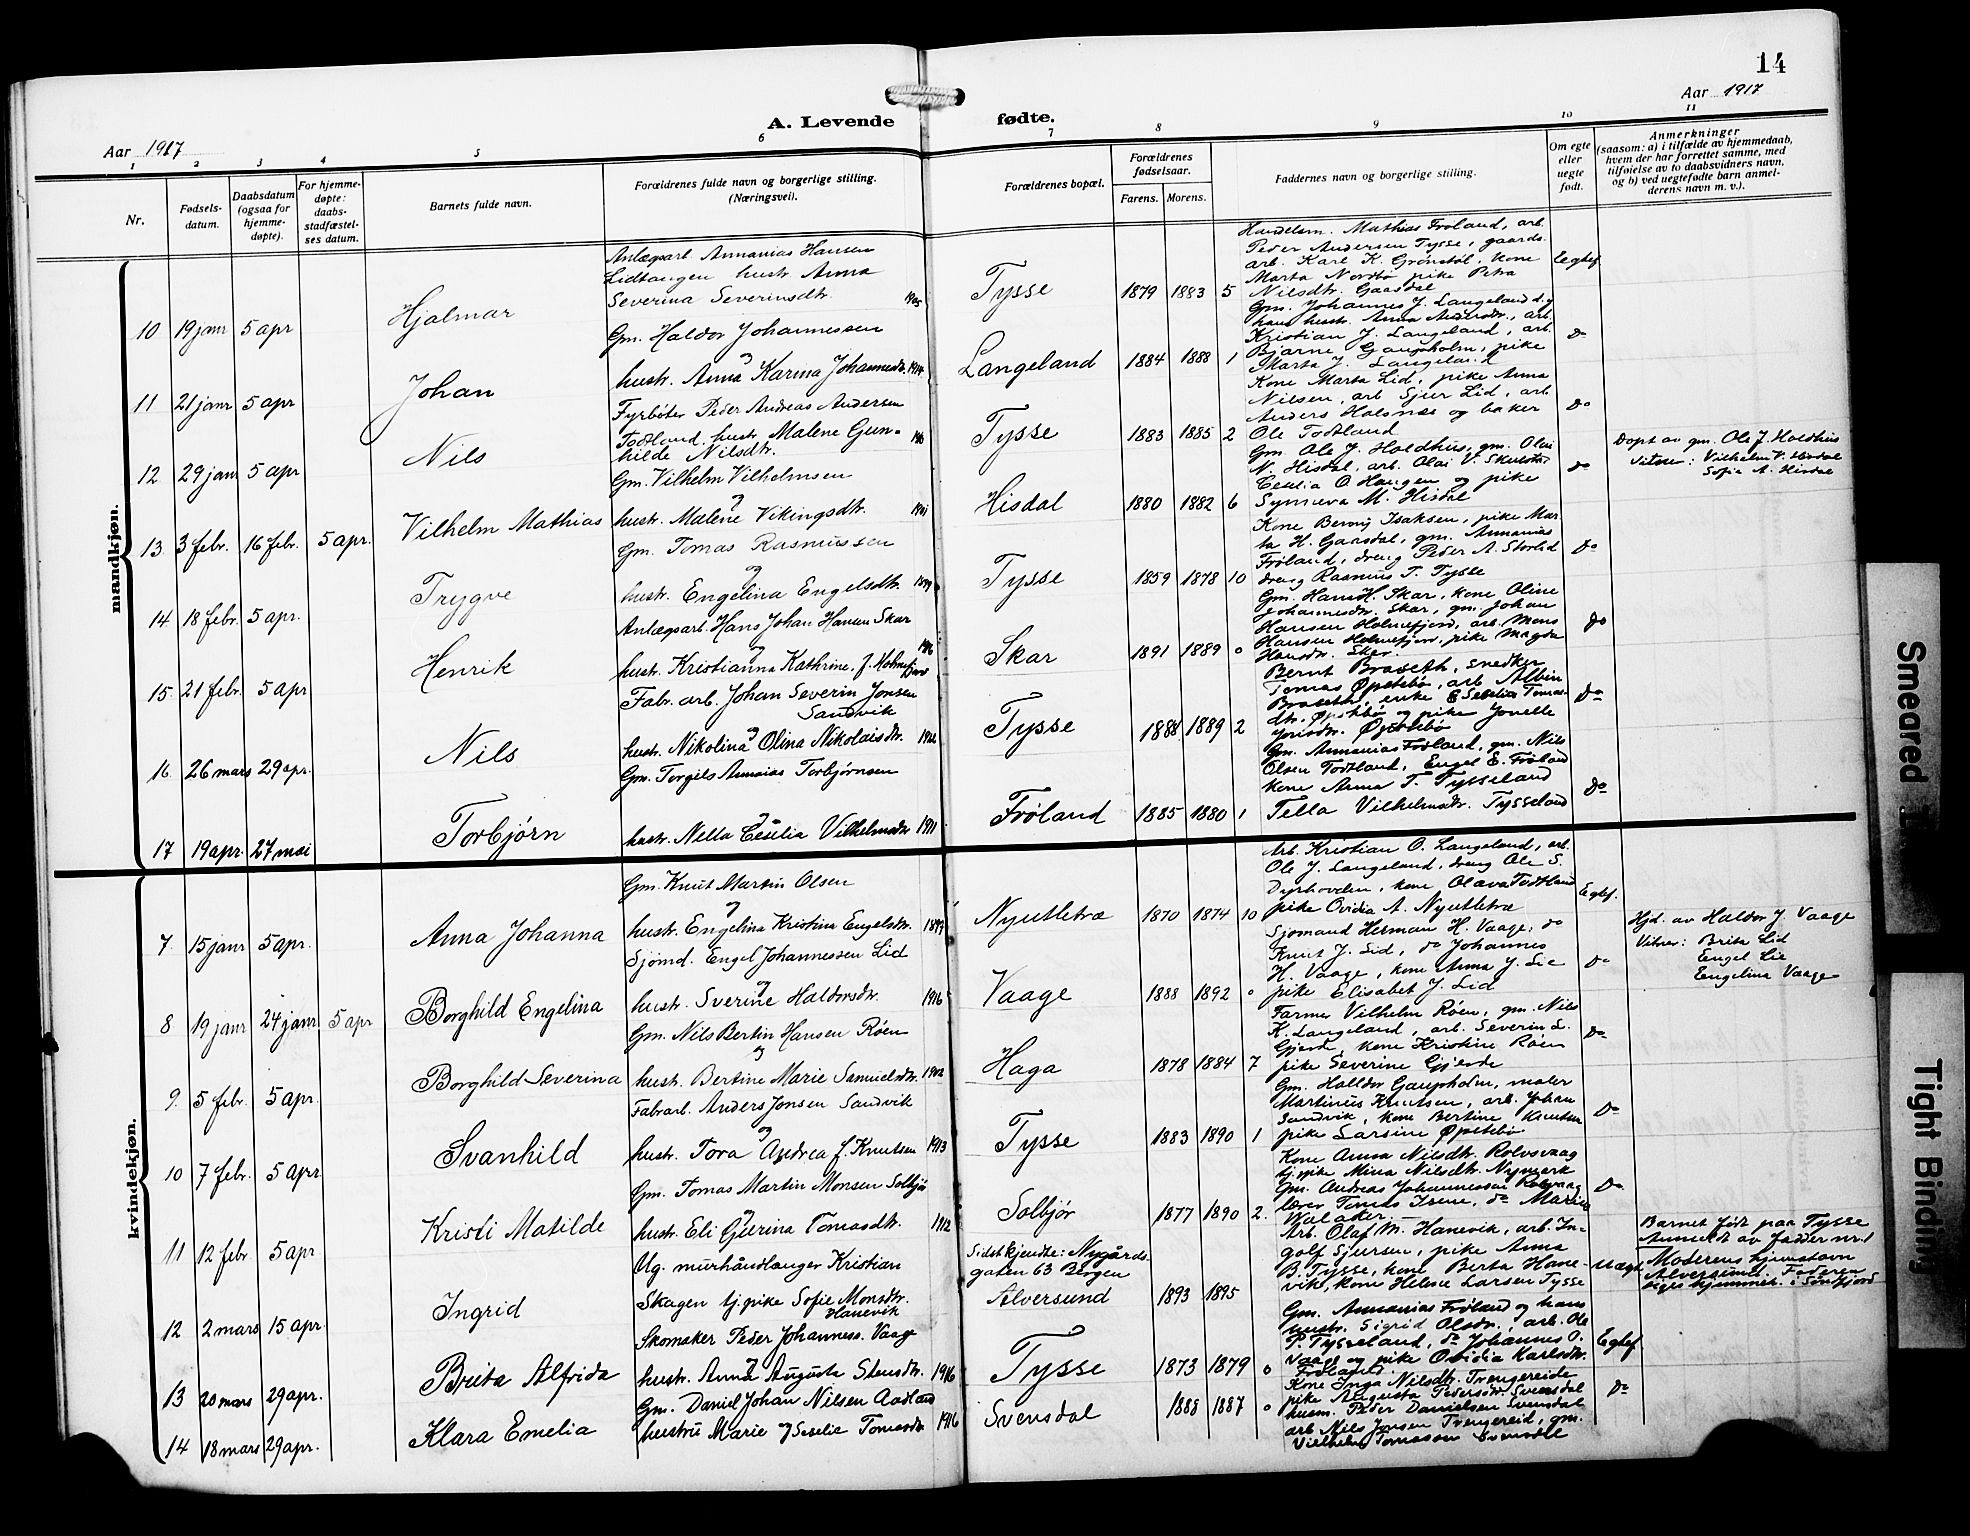 14
Aar 1917
A. Levende
fødte.
Aar 1917
1
2
3
4
5
6
7
8
9
10
11
Nr.
Fødsels-
datum.
Daabsdatum
(ogsaa for
hjemme-
døpte).
For hjemme-
døpte:
daabs-
stadfæstel-
ses datum.
Barnets fulde navn.
Forældrenes fulde navn og borgerlige stilling.
(Næringsvei).
Forældrenes bopæl.
Forældrenes
fødselsaar.
Farens. Morens.
Faddernes navn og borgerlige stilling.
Om egte
eller
uegte
født.
Anmerkninger
(saasom: a) i tilfælde av hjemmedaab,
hvem der har forrettet samme, med
tilføielse av to daabsvidners navn,
og b) ved uegtefødte barn anmel-
derens navn m. v.).
mandkjøn.
10 19 janr 5 apr Hjalmar
Anlægsarb. Annanias Hansen
Lidtangen hustr. Anna
Severina Severinsdtr. 1905
Tysse 1879 1883 5
Handelsm. Mathias Frøland, arb.
Peder Andersen Tysse, gaards.
arb. Karl K. Grønstøl, kone
Marta Nordbø pike Petra
Nilsdtr. Gaasdal
Egtef.
11 21 janr 5 apr Johan
Gm. Haldor Johannessen
og
hustr. Anna Karina Johannesdtr. 1914
Langeland 1884 1888 1
Gm. Johannes J. Langeland og
hans hustr. Anna Andersdtr., arb.
Kristian J. Langeland, arb.
Bjarne Gaupholm, pike
Marta J. Langeland
do
12 29 janr 5 apr Nils
Fyrbøter Peder Andreas Andersen
Todtland hustr. Malene Gun-
hilde Nilsdtr.
Tysse 1883 1885 2
Kone Marta Lid, pike Anna
Nilsen, arb Sjur Lid, arb
Anders Halsnæs og baker
Ole Todtland
do
13 3 febr. 16 febr. 5 apr. Vilhelm Mathias
Gm. Vilhelm Vilhelmsen
og
hustr. Malene Vikingsdtr. 1901
Hisdal 1880 1882 6
Gm. Ole J. Holdhus, gm. Olai
N. Hisdal, arb. Olai V. Skulstad
Cecilia O Haugen og pike
Synneva M. Hisdal
do
Døpt av gm. Ole J. Holdhus
Vitner: Vilhelm V. Hisdal
Sofie A. Hisdal
14 18 febr. 5 apr. Trygve
Gm. Tomas Rasmussen
og
hustr. Engelina Engelsdtr. 1899
Tysse 1859 1878 10
Kone Berny Isaksen, pike Mar
ta H. Gaasdal, gm. Annanias
Frøland, dreng Peder A. Storlid
dreng Rasmus T. Tysse
do
15. 21 febr. 5 apr Henrik
Anlægsarb. Hans Johan Hansen Skar
og
hustr. Kristianna Kathrine f. Holmefjord 1916
Skar 1891 1889 0
Gm. Hans H. Skar, kone Oline
Johannesdtr. Skar, gm. Johan
Hansen Holmefjord, arb. Mons
Hansen Holmefjord, pike Magda
Hansdtr. Skar.
do
16. 26 mars 29 apr. Nils
Fabr. arb. Johan Severin Jonsen
Sandvik
og
hustr. Nikolina Olina Nikolaisdtr.
Tysse 1888 1889 2
Bernt Braseth, snedker
Tomas Øpstebø, arb Albin
Braseth, enke Seselia Tomas-
dtr. Øpstebø og pike Jonette
Jonsdtr. Øpstebø
do
17 19 apr. 27 mai Torbjørn
Gm. Torgils Annaias Torbjørnsen
og
hustr. Nella Cecilia Vilhelmsdtr 1911
Frøland 1885 1880 1
Gm. Annanias Frøland, gm. Nils
Olsen Todtland, Engel E. Frøland
kone Anna T. Tysseland
Tella Vilhelmsdtr. Tysseland
do
kvindekjøn.
7. 15 janr 5 apr. Anna Johanna
Gm. Knut Martin Olsen
og
hustr. Engelina Kristina Engelsdtr. 1897
Nyutletræ 1870 1874 10
Arb. Kristian O. Langeland, arb.
Ole J. Langeland, dreng Ole S.
Dyrhovden, kone Olava Todtland
pike Ovidia A. Nyutletræ
Egtef.
8 19 janr 24 janr 5 apr Borghild Engelina
Sjømd. Engel Johannessen Lid
og
hustr. Sverine Haldorsdtr. 1916
Vaage 1888 1892 0
Sjømand Herman H. Vaage, do
Knut J. Lid, do Johannes
H. Vaage, kone Anna J. Lie
pike Elisabet J. Lid
do
Hjd. av Haldor J. Vaage
Vitner: Brita Lid
Engel Lie
Engelina Vaage
9. 5 febr. 5 apr. Borghild Severina
Gm. Nils Bertin Hansen Røen
og
hustr. Bertine Marie Samuelsdtr. 1902
Haga 1878 1884 7
Farmer Vilhelm Røen, gm. Nils
K. Langeland, arb. Severin S.
Gjerde, kone Kristine Røen
pike Severine Gjerde
do
10 7 febr. 5 apr Svanhild
Fabrarb. Anders Jonsen Sandvik
og
hustr. Tora Andrea f. Knutsen 1913
Tysse 1883 1890 1
Gm. Halldor Gaupholm, maler
Martinius Knutsen, arb. Johan
Sandvik, kone Bertine Knutsen
pike Larsine Øpstebø
do
11 12 febr 5 apr Kristi Matilde
Gm. Tomas Martin Monsen Solbjør
og
hustr. Eli Gjerina Tomasdtr. 1912
Solbjør 1877 1890 2.
Kone Anna Nilsdtr. Rolvsvaag
tj.pike Mina Nilsdtr. Nymark
Gm. Andreas Johannessen Rolvsvaag
lærer Tomas Isene, do Marius
do
12 2 mars 15 apr. Ingrid
Ug. murhåndlanger Kristian
Skagen tj.pike Sofie Monsdtr.
Hanevik
Sidst kjendte: Nygårds
gaten 63 Bergen
Alversund 1893 1895
Arb. Olaf M. Hanevik, arb. In-
golf Sjursen, pike Anna
B. Tysse, kone Berta Hane-
vik, kone Helene Larsen Tysse
Uægte
Barnet født paa Tysse
Anmeldt av fadder nr. 1
Moderens hjemstavn
Alversund. Faderen
siges hjemmeh. i Søndfjord
13 20 mars 29 apr. Brita Alfrida
Skomaker Peder Johanness. Vaage
og
hustr. Anna Augusta Stensdtr. 1916
Tysse 1873 1879 0
Gm. Annanias Frøland og hans
hustr. Sigrid Olsdtr., arb. Ole
P. Tysseland, do Johannes O.
Vaage og pike Ovidia Karlsdtr.
Frøland
Egtef
14 18 mars 29 apr. Klara Emelia
Gm. Daniel Johan Nilsen Aadland
og
hustru Marie Seselie Tomasdtr 1916
Svensdal 1888 1887 0
Kone Inga Nilsdtr. Trengereide
pike Augusta Pedersdtr. Svensdal
husm. Peder Danielsen Svensdal
arb Nils Jonsen Trengereid, gm.
Vielhelm Tomassen Svensdal
do
Smeared
Tight Binding